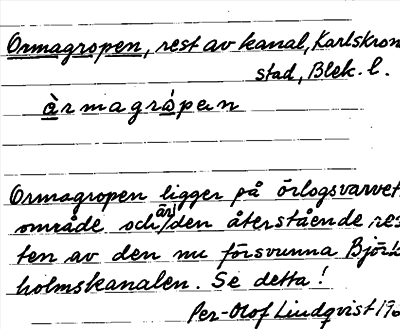 Ormagropen, rest av kanal, Karlskron
stad, Blek. l.
àrmagrȧpen
Ormagropen ligger på örlogsvarvet
område och är den återstående res
ten av den nu försvunna Björk
holmskanalen. Se detta!
Per-Olof Lindqvist 19